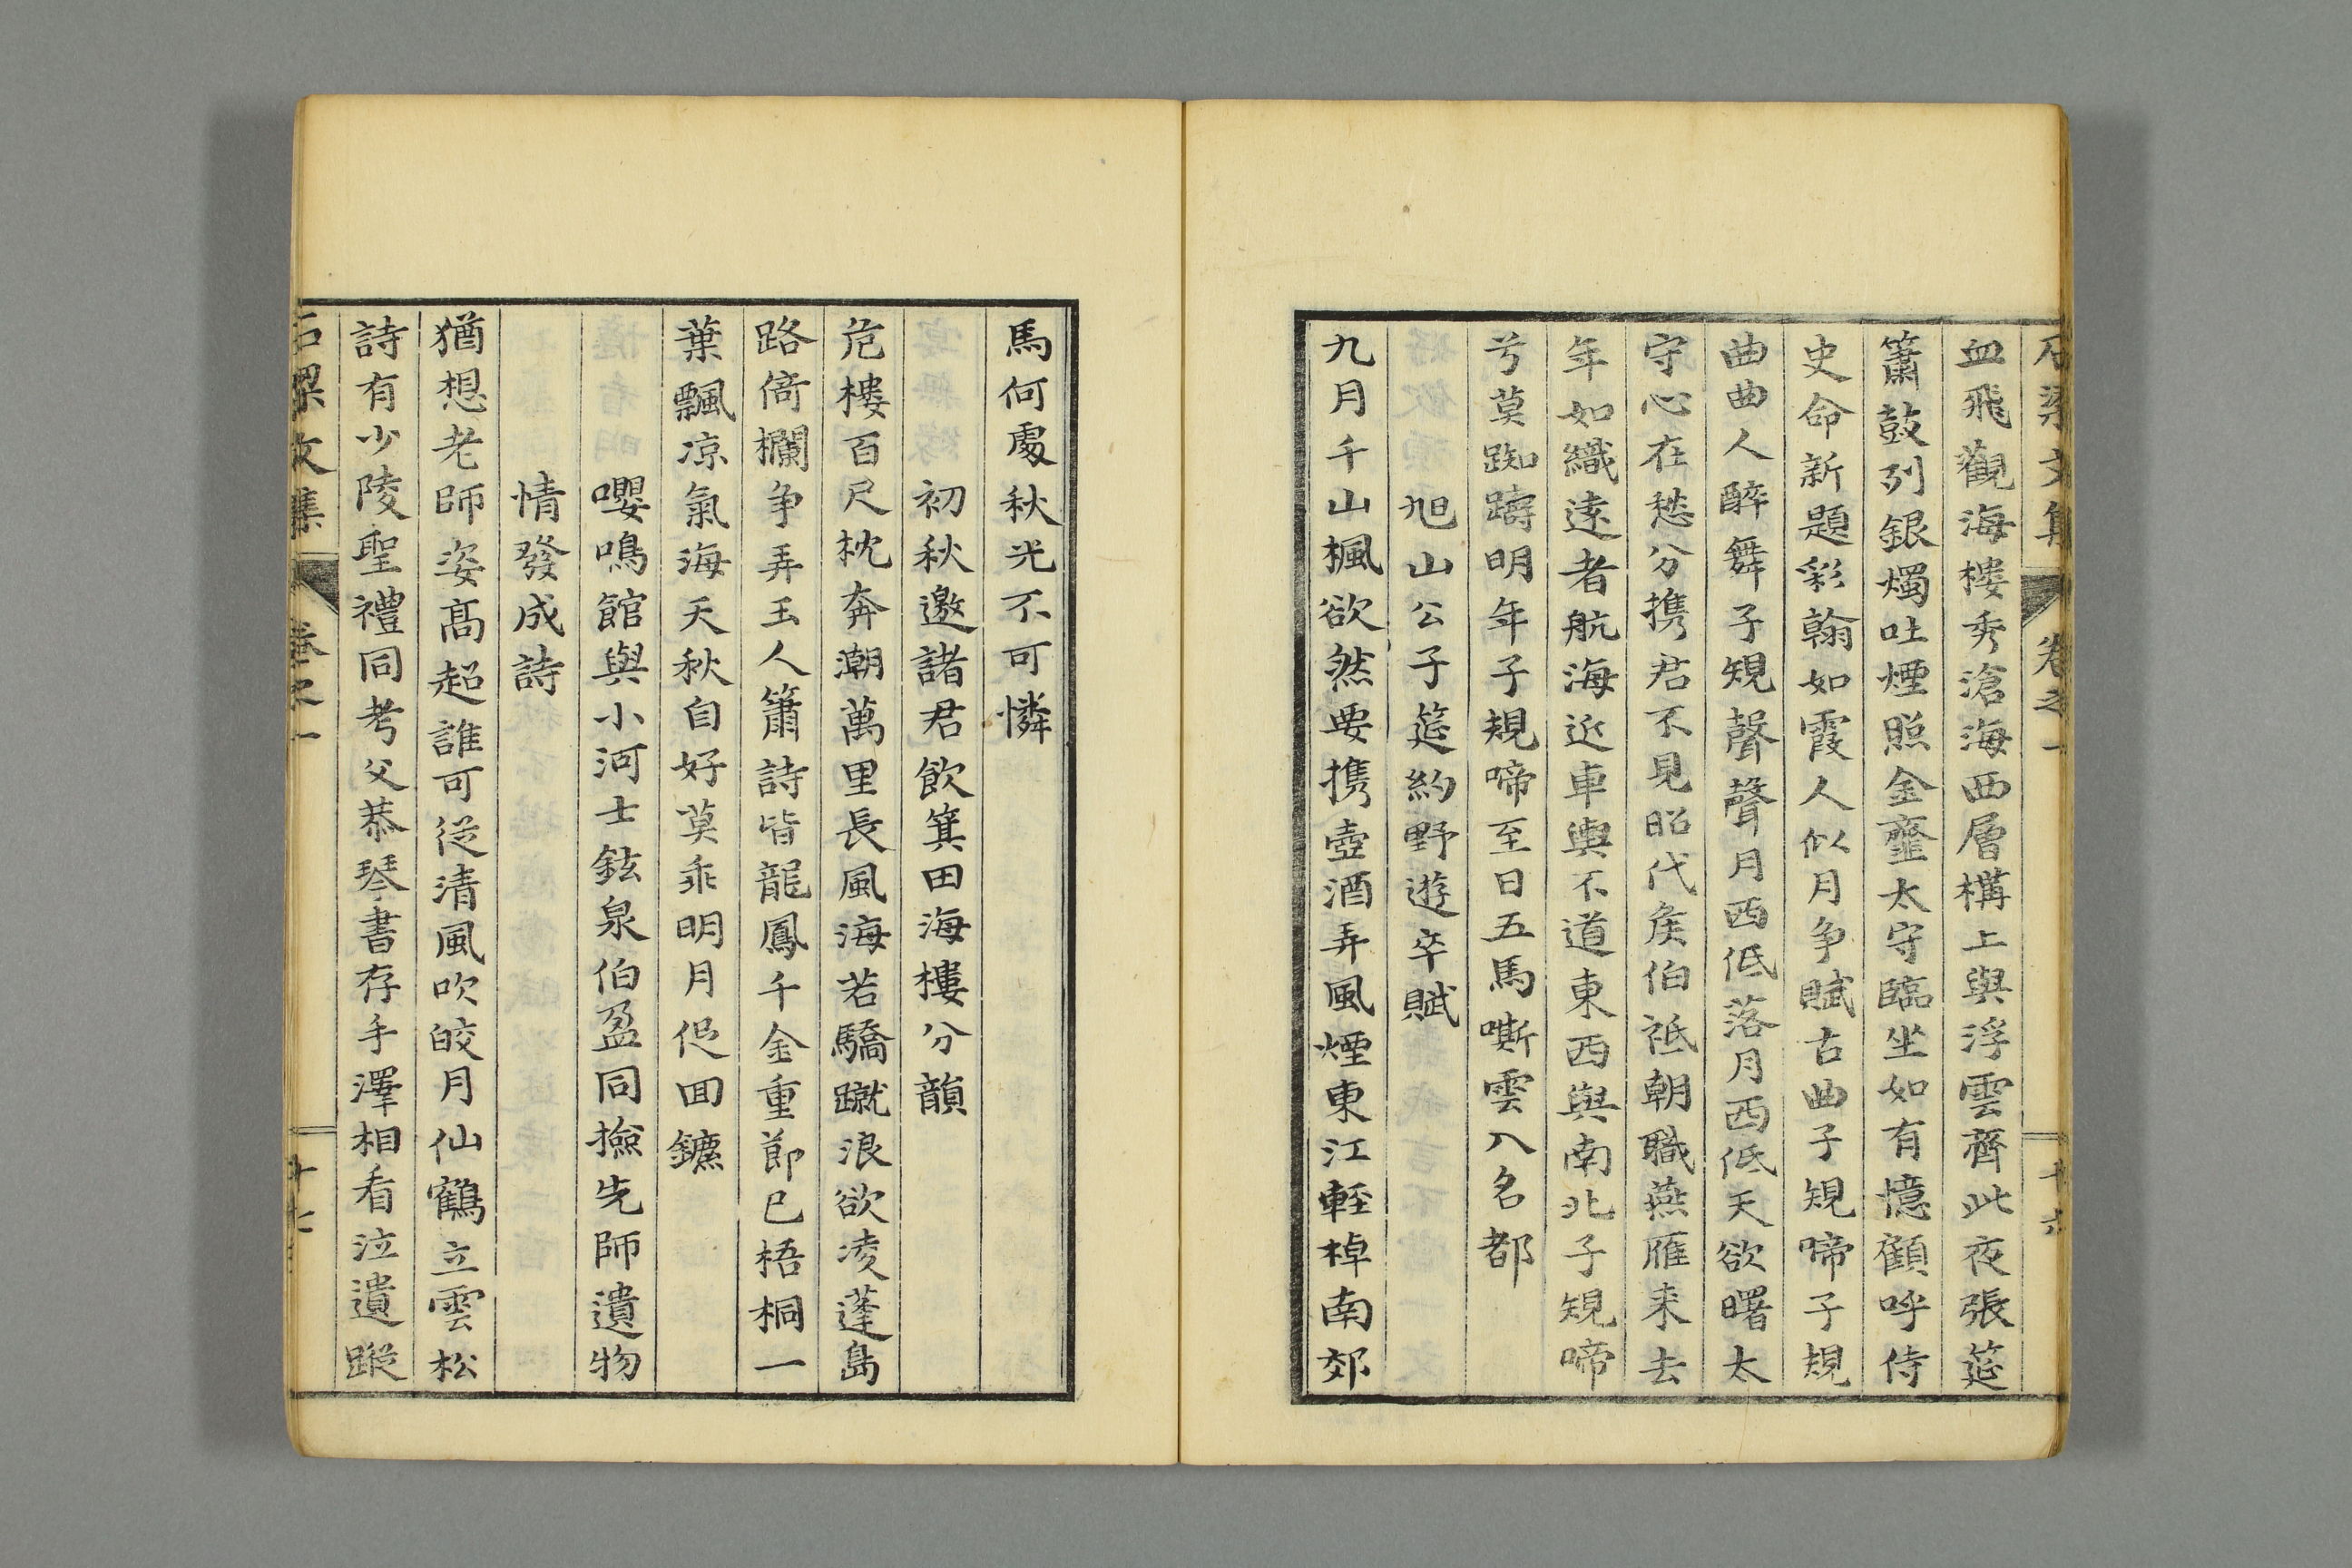 石梁文集 卷之一 十六
血飛觀海樓秀滄海西層構上與浮雲齊此夜張筵
簫鼓列銀燭吐煙照金虀太守臨坐如有憶顧呼侍
史命新題彩翰如霞人似月争賦古曲子規啼子規
曲曲人醉舞子規聲聲月西低落月西低天欲曙太
守心在愁分携君不見昭代矦伯祗朝職燕雁来去
年如織遠者航海近車輿不道東西與南北子規啼
兮莫踟躊明年子規啼至日五馬嘶雲入名都
旭山公子筵約野遊卒賦
九月千山楓欲然要携壺酒弄風煙東江輕棹南郊
馬何處秋光不可憐
初秋邀諸君飲箕田海樓分韻
危樓百尺枕奔潮萬里長風海若驕蹴浪欲凌蓬島
路倚欄争弄玉人簫詩皆龍鳳千金重節已梧桐一
葉飄凉氣海天秋自好莫乖明月促回鑣
嚶鳴館與小河士鉉泉伯盈同撿先師遺物
情發成詩
猶想老師姿髙超誰可從清風吹皎月仙鶴立雲松
詩有少陵聖禮同考父恭琴書存手澤相看泣遺蹤
石梁文集 卷之一 十七